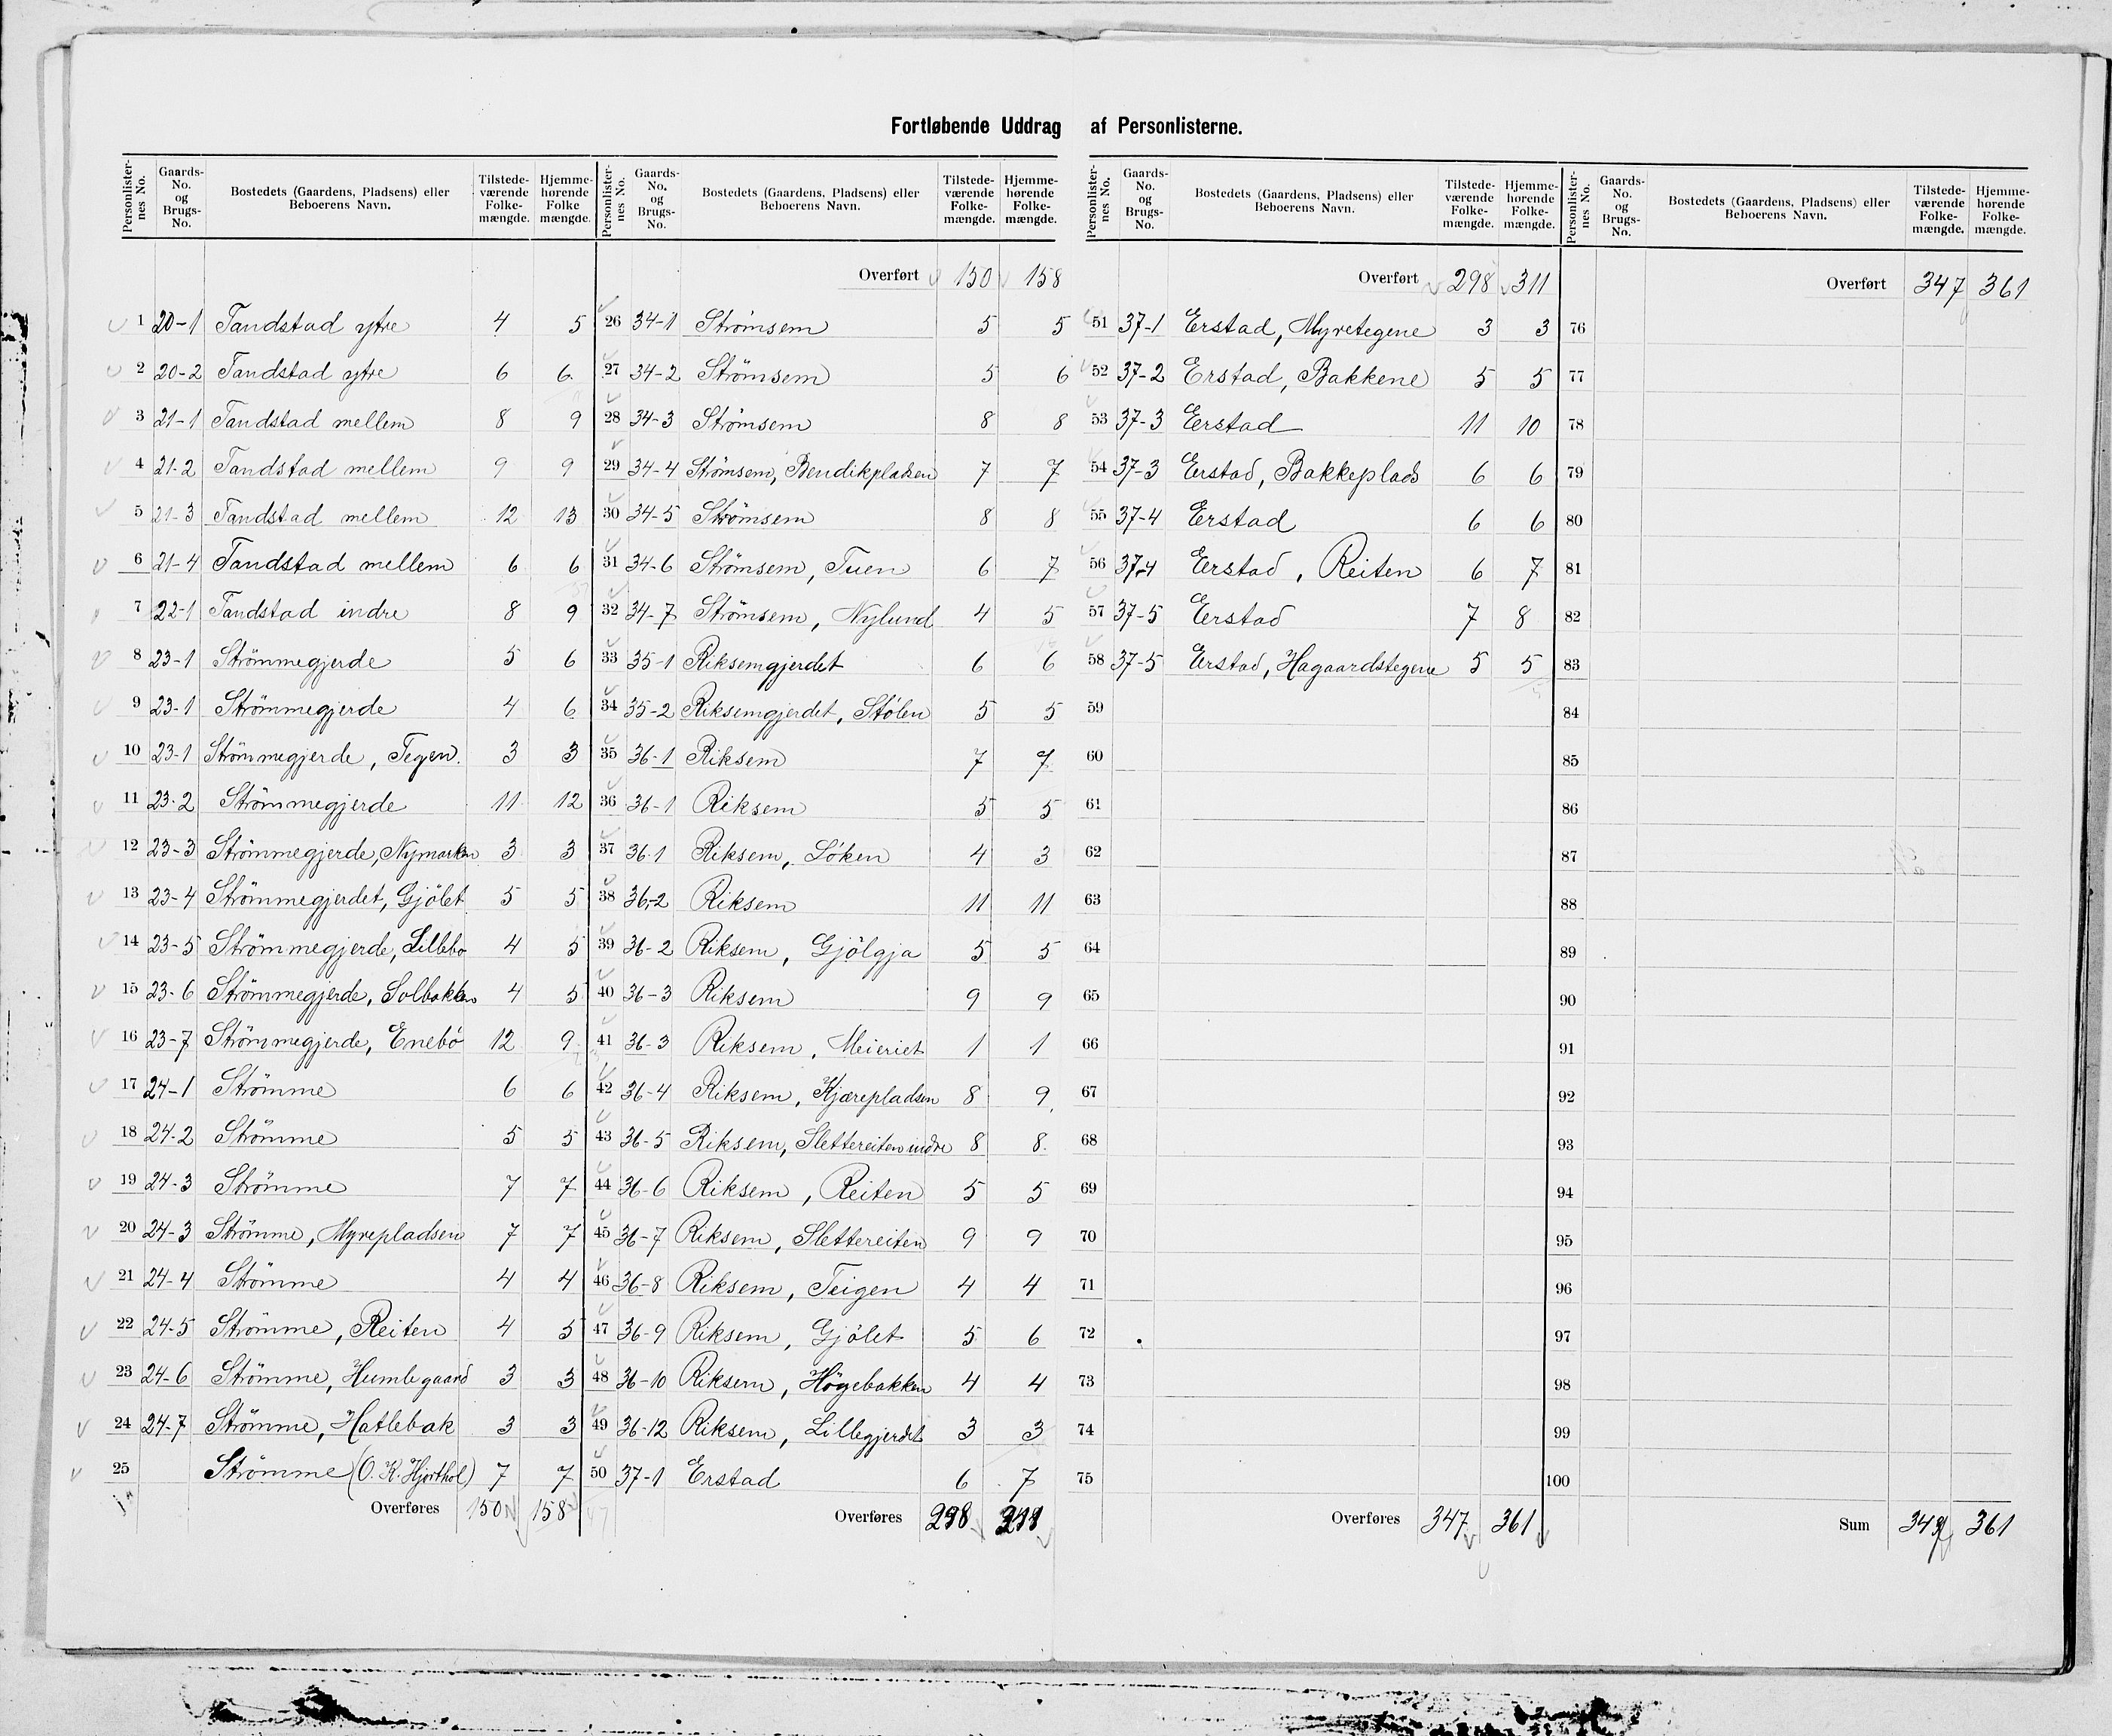 Fortløbende Uddrag af Personlisterne.
Personlisternes No. Gaards-No. og Brugs-No. Bostedets (Gaardens, Pladsens) eller Beboerens Navn. Tilstedeværende Folkemængde. Hjemmehørende Folke mængde.
1 20-1 Tandstad ytre 4 5
2 20-2 Tandstad ytre 6 6
3 21-1 Tandstad mellem 8 9
4 21-2 Tandstad mellem 9 9
5 21-3 Tandstad mellem 12 13
6 21-4 Tandstad mellem 6 6
7 22-1 Tandstad indre 8 9
8 23-1 Strömmegjerde 5 6
9 23-1 Strömmegjerde 4 6
10 23-1 Strömmegjerde, Tegen 3 3
11 23-2 Strömmegjerde 11 12
12 23-3 Strömmegjerde, Nymarken 3 3
13 23-4 Strömmegjerdet, Gjölet 5 5
14 23-5 Strömmegjerde, Lillebo 4 5
15 23-6 Strömmegjerde, Solbakken 4 5
16 23-7 Strömmegjerde, Enebö 12 9
17 24-1 Strömme 6 6
18 24-2 Strömme 5 5
19 24-3 Strömme 7 7
20 24-3 Strömme, Myrepladsen 7 7
21 24-4 Strömme 4 4
22 24-5 Strömme, Reiten 4 5
23 24-6 Strömme, Humlegaard 3 3
24 24-7 Strömme, Hatlebak 3 3
25 Strömme (O. K. Hjorthol) 7 7
Overføres 150 158
Personlisternes No. Gaards-No. og Brugs-No. Bostedets (Gaardens, Pladsens) eller Beboerens Navn. Tilstedeværende Folkemængde. Hjemmehørende Folkemængde.
Overført 150 158
26 34-1 Strömsem 5 5
27 34-2 Strömsem 5 6
28 34-3 Strömsem 8 8
29 34-4 Stömsem, Bendikpladsen 7 7
30 34-5 Strömsem 8 8
31 34-6 Stömsem, Tuen 6 7
32 34-7 Strömsem, Nylund 4 5
33 35-1 Riksemgjerdet 6 6
34 35-2 Riksemgjerdet, Stölen 5 5
35 36-1 Riksem 7 7
36 36-1 Riksem 5 5
37 36-1 Riksem, Löken 4 3
38 36-2 Riksem 11 11
39 36-2 Riksem, Gjölgja 5 5
40 36-3 Riksem 9 9
41 36-3 Riksem, Meieriet 1 1
42 36-4 Riksem, Kjærepladsen 8 9
43 36-5 Riksem, Slettereiten indre 8 8
44 36-6 Riksem, Reiten 5 5
45 36-7 Riksem, Slettereiten 9 9
46 36-8 Riksem, Teigen 4 4
47 36-9 Riksem, Gjölet 5 6
48 36-10 Riksem, Högebakken 4 4
49 36-12 Riksem, Lillegjerdet 3 3
50 37-1 Erstad 6 7
Overføres 298 311
Personlisternes No. Gaards-No. og Brugs-No. Bostedets (Gaardens, Pladsens) eller Beboerens Navn. Tilstedeværende Folkemængde. Hjemmehørende Folkemængde.
Overført 298 311
51 37-1 Erstad, Myretegene 3 3
52 37-2 Erstad, Bakkene 5 5
53 37-3 Erstad 11 10
54 37-3 Erstad, Bakkeplads 6 6
55 37-4 Erstad 6 6
56 37-4 Erstad, Reiten 6 7
57 37-5 Erstad 7 8
58 37-5 Erstad, Hagaardstegene 5 5
59
60
61
62
63
64
65
66
67
68
69
70
71
72
73
74
75
Overføres 347 361
Personlisternes No. Gaards-No. og Brugs-No. Bostedets (Gaardens, Pladsens) eller Beboerens Navn. Tilstedeværende Folkemængde. Hjemmehørende Folkemængde.
Overført 347 361
76
77
78
79
80
81
82
83
84
85
86
87
88
89
90
91
92
93
94
95
96
97
98
99
100
Sum 347 361